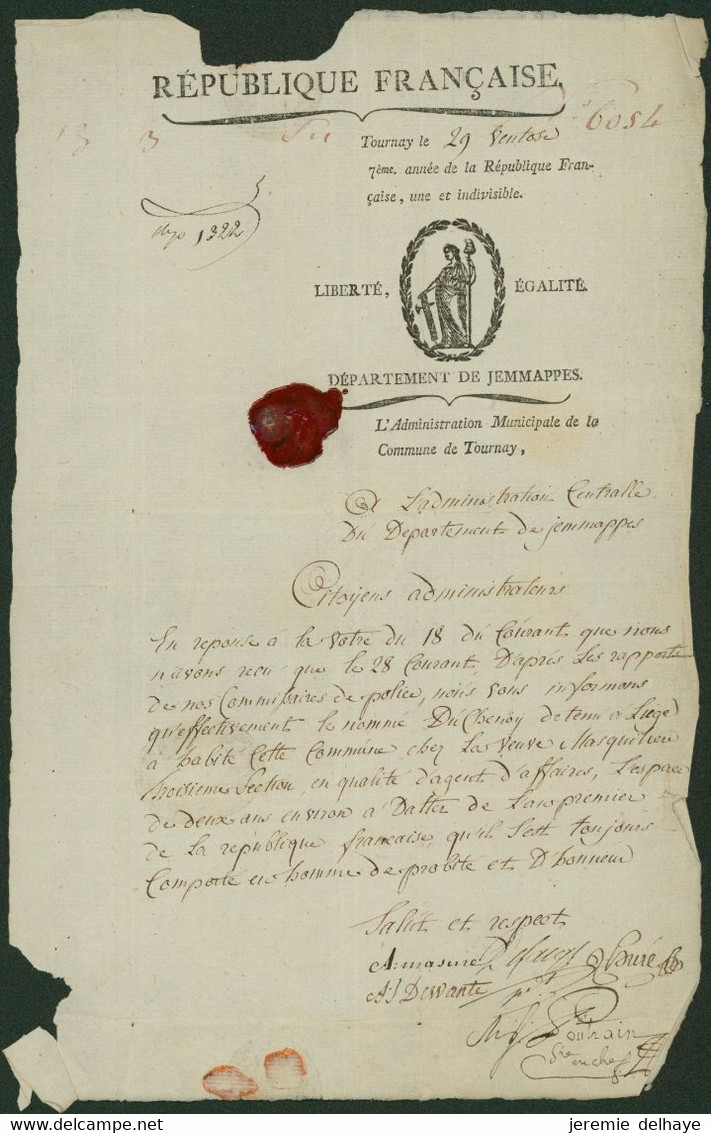 RÉPUBLIQUE FRANÇAISE.
6054
Tournay le 29 Ventose
7ème. année de la République Fran-
çaise, une et indivisible.
1322
LIBERTÉ, ÉGALITÉ.
DÉPARTEMENT DE JEMMAPPES.
L'Administration Municipale de la
Commune de Tournay,
A L'administration Centralle
Du Departement de jemmappes
Citoyens administrateurs
En reponse à la votre du 18 du Courant que nous
n'avons reçu que le 28 Courant, D'après Les rapports
de nos Commissaires de police, nous vous informons
qu'effectivement le nommé DuChenoy detenu a Liege
à habité Cette Commune chez La veuve Masquilier
troisieme Section, en qualité d'agent d'affaires, L'espace
de deux ans environ a Datter de L'an premier
de La république francaise, qu'il s'est toujours
Comporté en homme de probité et D'honneur
Salut et respect
A. masure
A J Dewante
Poutrain
Sre en chef
jeremie delhaye